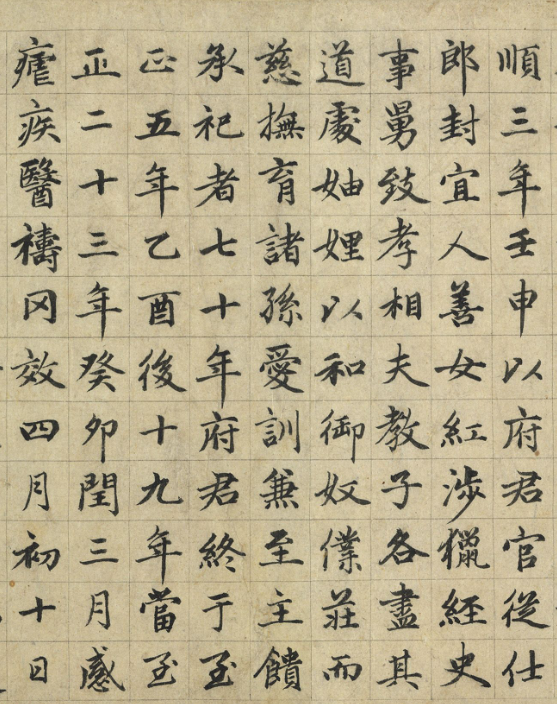 順三年壬申以府君官従仕
郎封宜人善女紅渉獵經史
事舅致孝相夫教子各盡其
道處妯娌以和御奴僕莊而
慈撫育諸孫愛訓兼至主饋
承祀者七十年府君終于至
正五年乙酉後十九年當至
正二十三年癸卯閏三月感
瘧疾醫禱罔效四月初十日